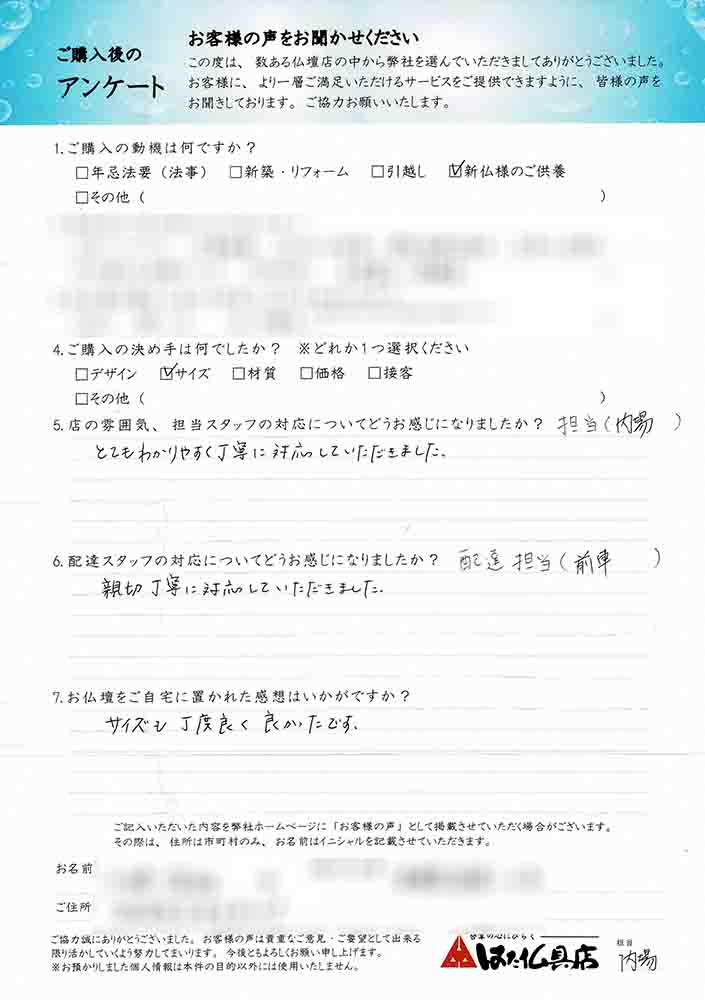 ご購入後の
アンケート
お客様の声をお聞かせください
この度は、数ある仏壇店の中から弊社を選んでいただきましてありがとうございました。
お客様に、より一層ご満足いただけるサービスをご提供できますように、皆様の声を
お聞きしております。ご協力お願いいたします。
1.ご購入の動機は何ですか？
□年忌法要（法事） □新築・リフォーム □引越し ☑新仏様のご供養
□その他（ ）
4.ご購入の決め手は何でしたか？ ※どれか1つ選択ください
□デザイン ☑サイズ □材質 □価格 □接客
□その他（ ）
5.店の雰囲気、担当スタッフの対応についてどうお感じになりましたか？ 担当（内場 ）
とてもわかりやすく丁寧に対応していただきました。
6.配達スタッフの対応についてどうお感じになりましたか？ 配達担当（前車 ）
親切丁寧に対応していただきました。
7.お仏壇をご自宅に置かれた感想はいかがですか？
サイズも丁度良く良かったです。
ご記入いただいた内容を弊社ホームページに「お客様の声」として掲載させていただく場合がございます。
その際は、住所は市町村のみ、お名前はイニシャルを記載させていただきます。
お名前
ご住所
ご協力誠にありがとうございました。お客様の声は貴重なご意見・ご要望として出来る
限り活かしていくよう努力してまいります。今後ともよろしくお願い申し上げます。
※お預かりしました個人情報は本件の目的以外には使用いたしません。
はた仏具店
担当
内場